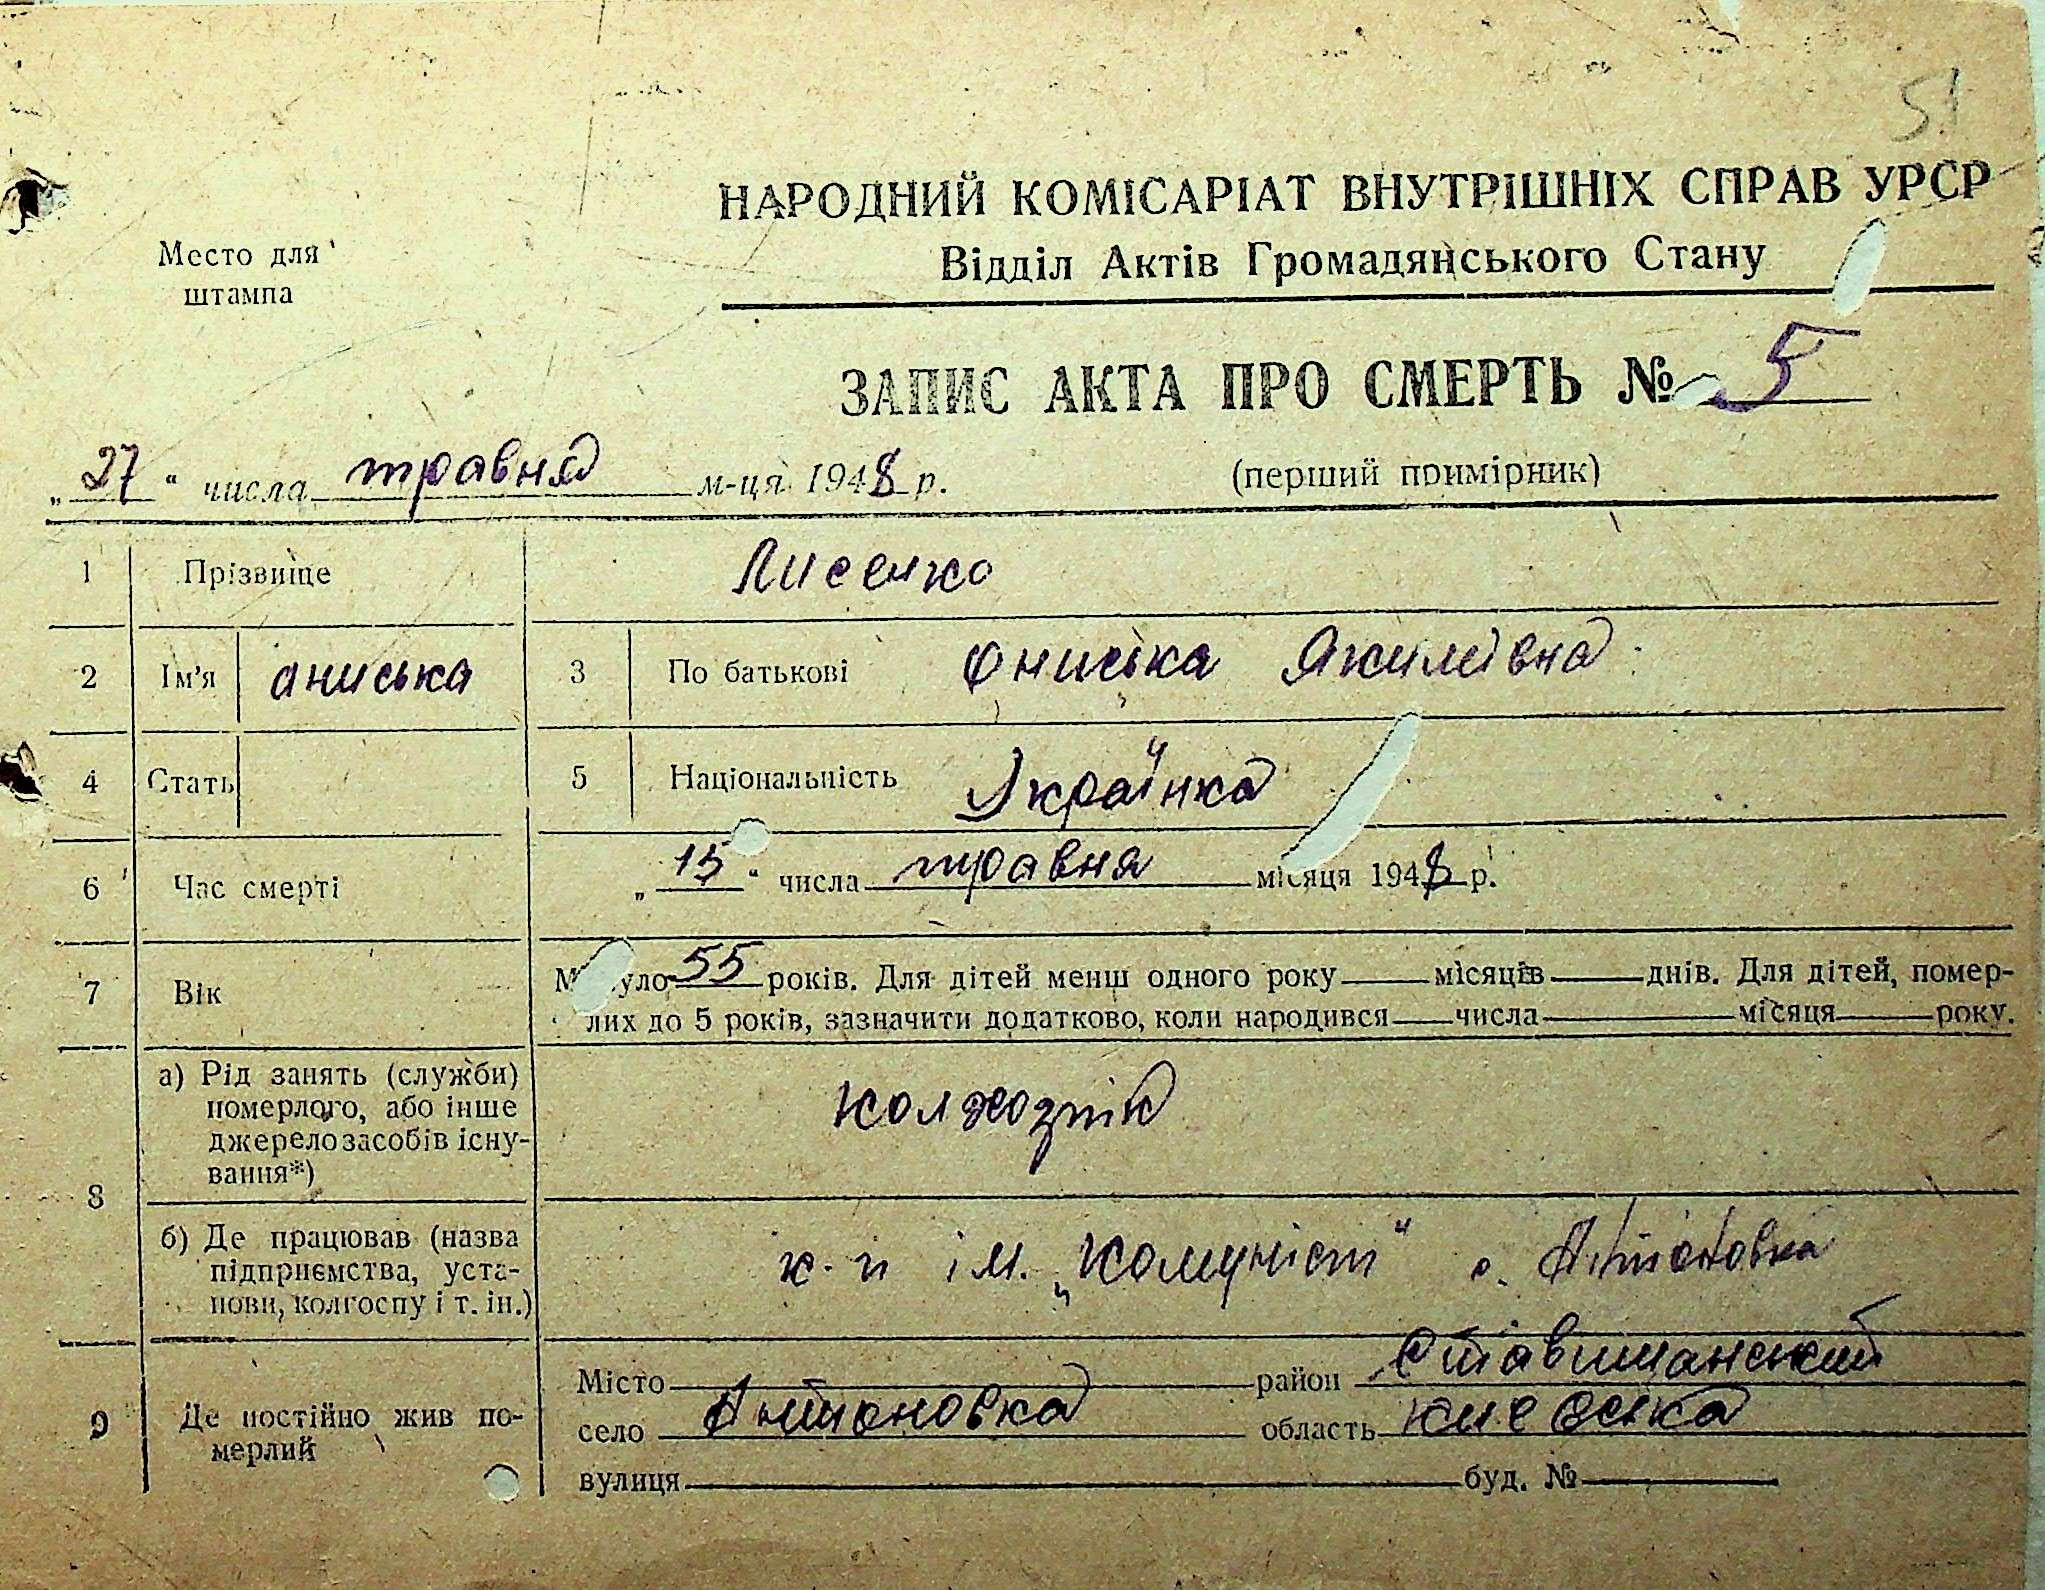 51
НАРОДНИЙ КОМІСАРІАТ ВНУТРІШНІХ СПРАВ УРСР
Відділ Актів Громадянського Стану
Место для
штампа
ЗАПИС АКТА ПРО СМЕРТЬ № 5
„27“ числа травня м-ця 1948 р.
(перший примірник)
1 Прізвище Лисенко
2 Ім'я аниська 3 По батькові Ониська Якилівна
4 Стать 5 Національність Українка
6 Час смерті „15“ числа травня місяця 1948 р.
7 Вік Минуло 55 років. Для дітей менш одного року місяців днів. Для дітей, помер-
лих до 5 років, зазначити додатково, коли народився числа місяця року.
8 а) Рід занять (служби)
померлого, або інше
джерело засобів існу-
вання*)
колхозник
б) Де працював (назва
підприємства, уста-
нови, колгоспу і т. ін.)
к-п ім. „Комуніст" с. Антоновка
9 Де постійно жив по-
мерлий
Місто район Ставищанський
село Антоновка область киевська
вулиця буд. №